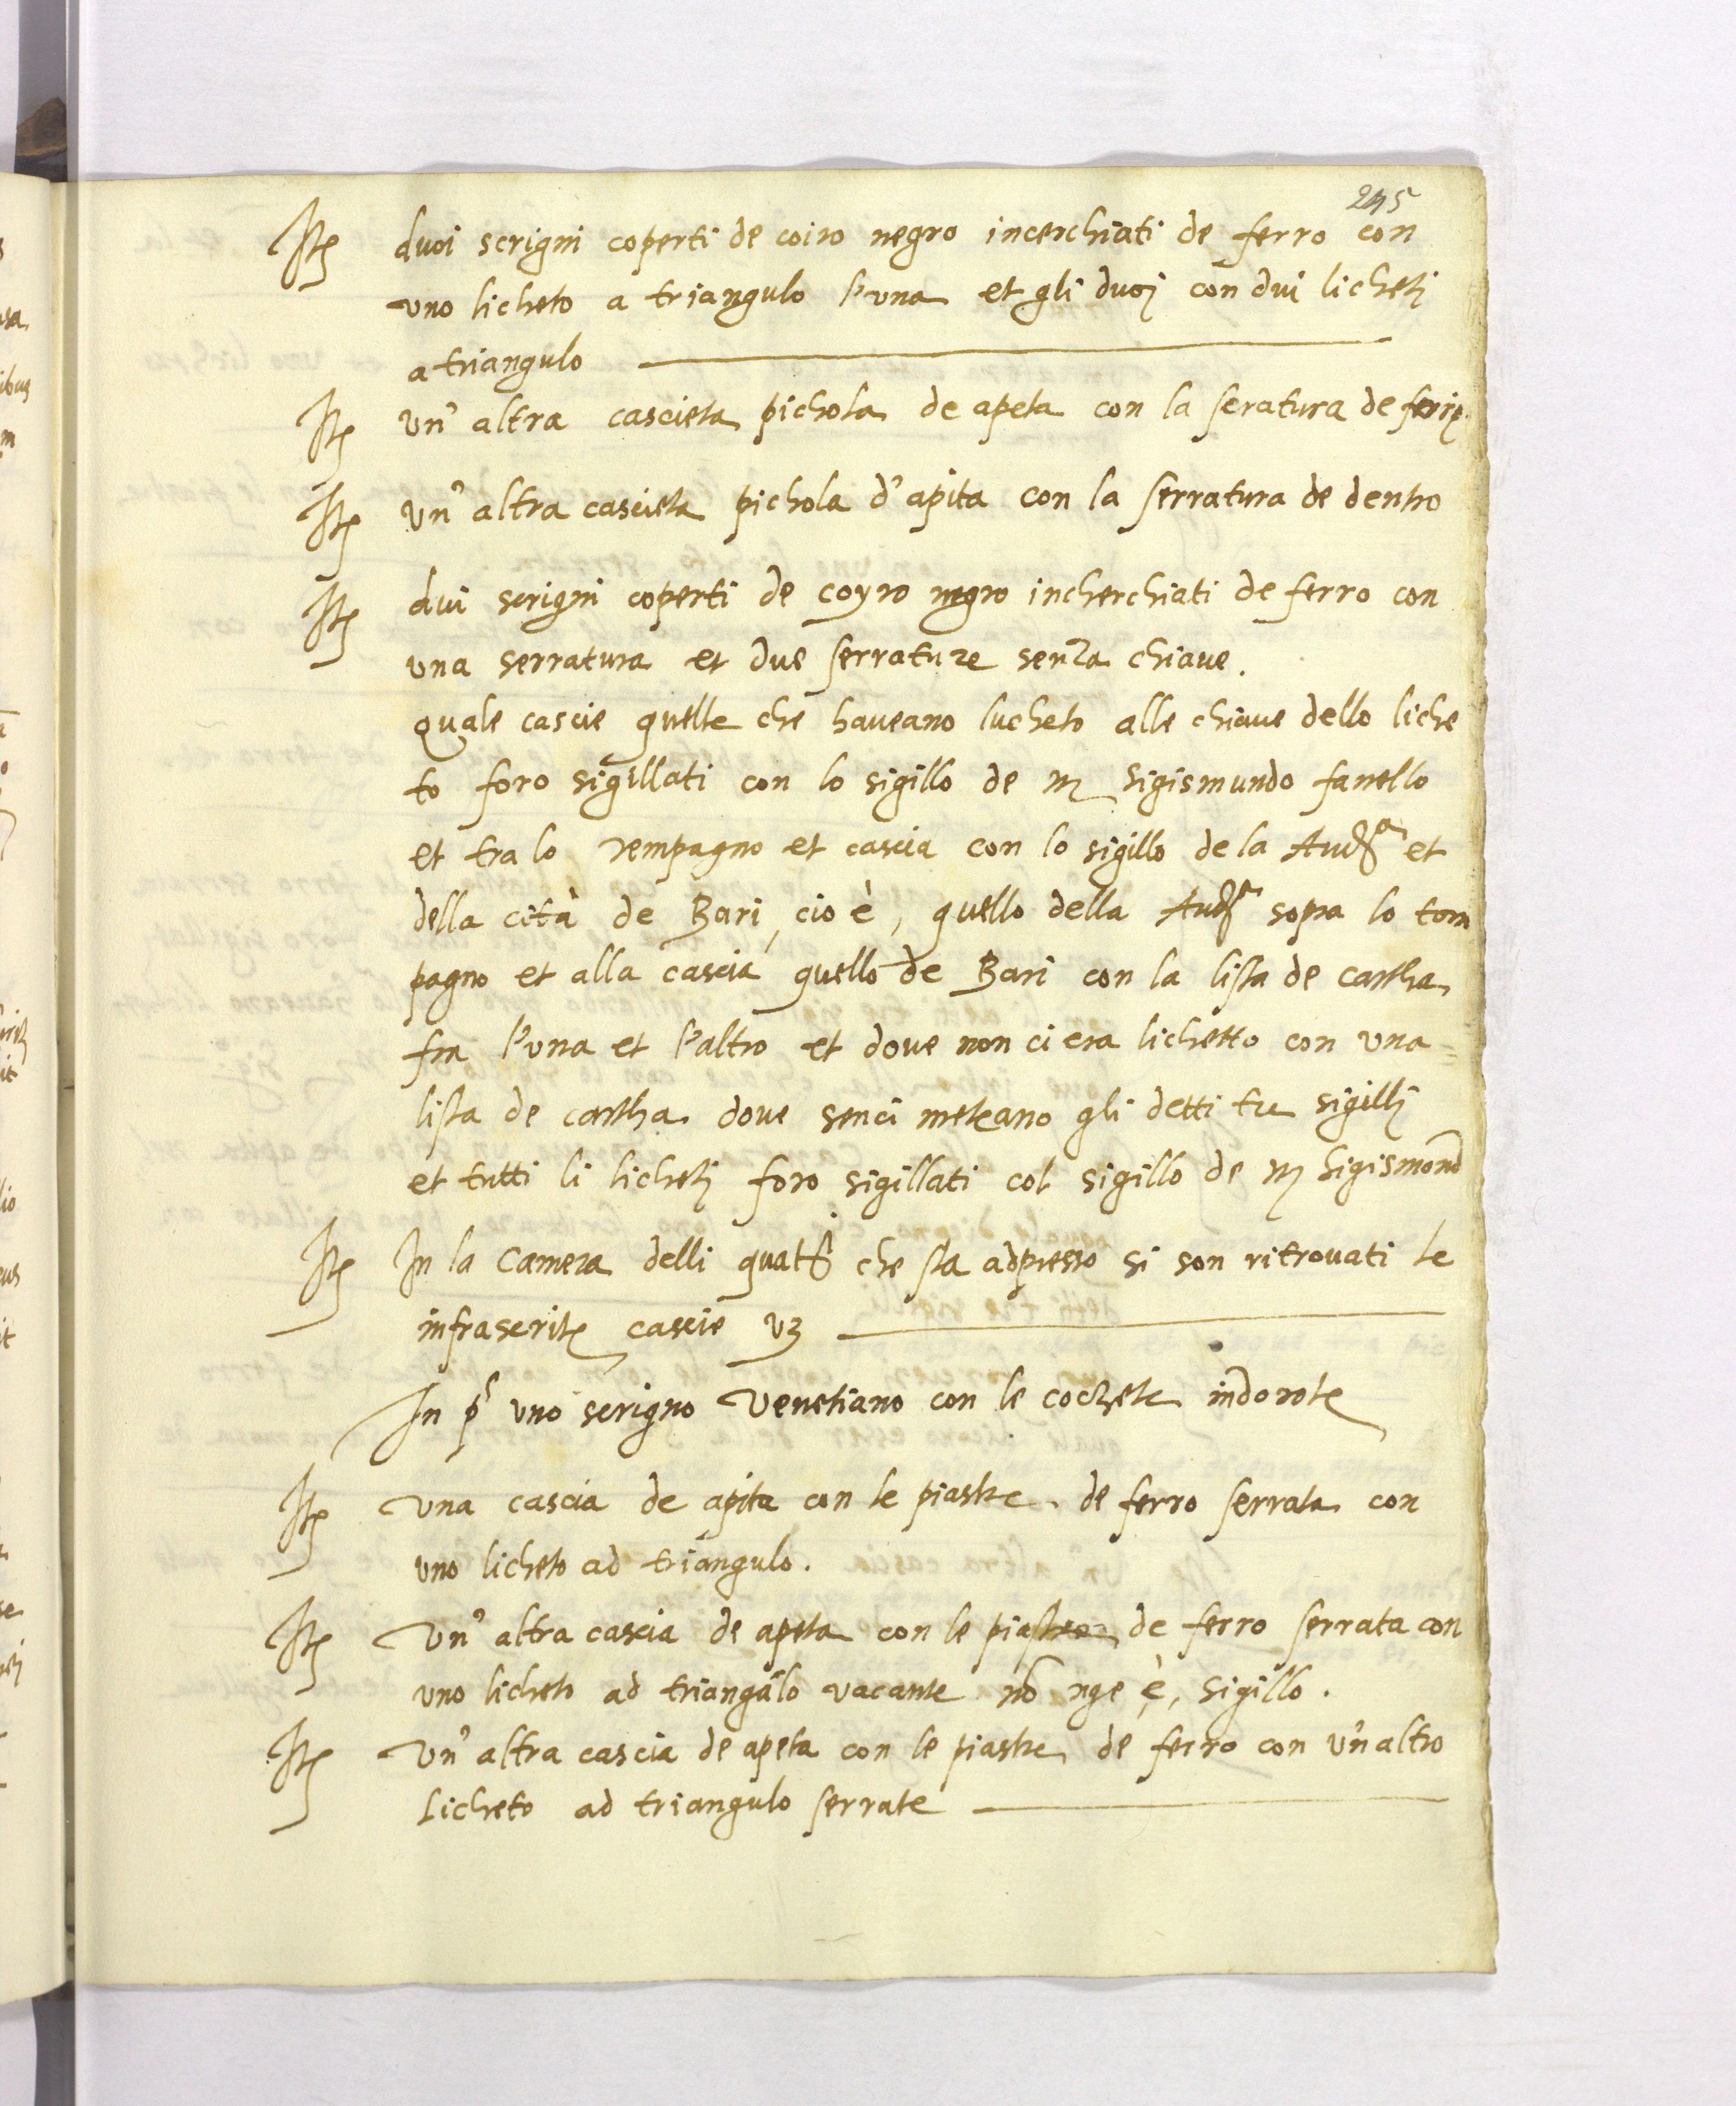 245
Itē duoi scrigni coperti de coiro negro incerchiati de ferro con
uno licheto a triangulo l'una et gli duoj con dui licheti
a triangulo
Itē un' altra cascieta pichola de apeta con la seratura de
Itē un' altra cascieta pichola d'apita con la serratura de dentro
Itē dui scrigni coperti de coyro negro incherchiati de ferro con
una serratura et due serrature senza chiave.
quale cascie quelle che haveano lucheto alle chiave dello liche
to foro sigillati con lo sigillo de m sigismundo fanello
et tra lo tempagno et cascia con lo sigillo de la Audᵃ et
della cità de Bari, cio è, quello della Audᵃ sopra lo tom
pagno et alla cascia quello de Bari con la lista de cartha
fra l'una et l'altro et dove non ci era lichetto con una
lista de cartha dove senci meteano gli detti tre sigilli
et tutti li licheti foro sigillati col sigillo de m Sigismond
Itē In la camera delli che sta adpresso si son ritrovati le
infrascrite cascie vz
In pᵃ uno scrigno venetiano con le cochete indorate
Itē una cascia de apita con le piastre de ferro serrata con
uno licheto ad triangulo.
Itē Un' altra cascia de apeta con le piastre de ferro serrata con
uno licheto ad triangulo vacante nō nge è, sigillo.
Itē Un' altra cascia de apeta con le piastre de ferro con un altro
Licheto ad triangulo serrate